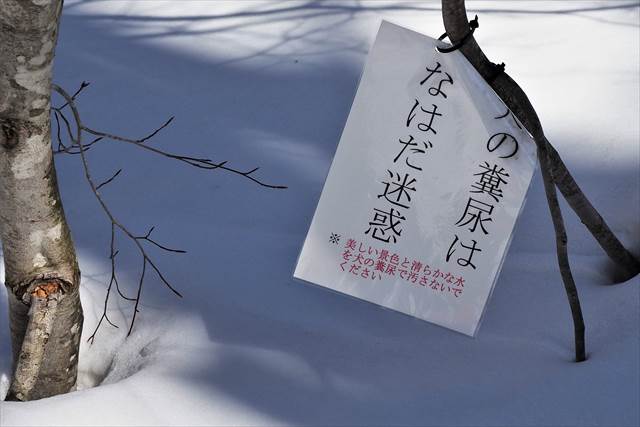 犬の糞尿は
なはだ迷惑
※
美しい景色と清らかな水
を犬の糞尿で汚さないで
ください